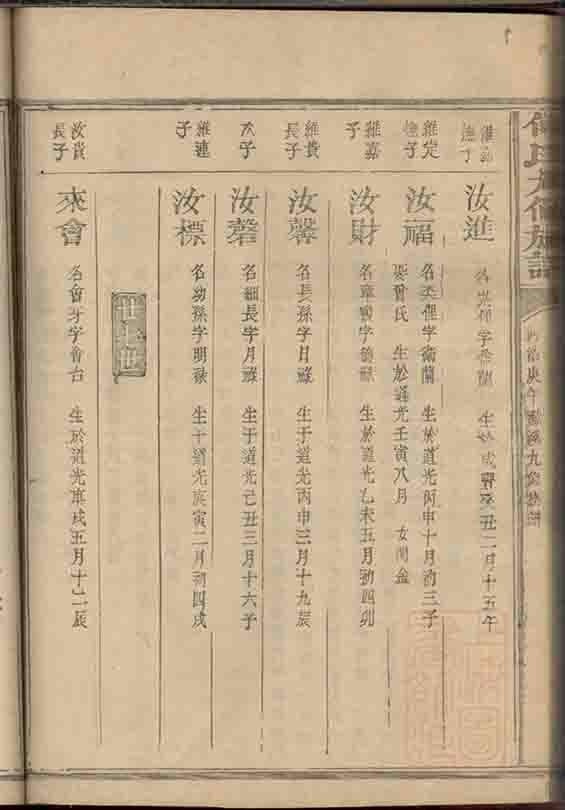 氏九修族譜
庚午
九修族譜
汝進
生於咸豐癸丑二月十五午
維定
子
汝福
字衛蘭 生於道光丙申十月初三子
娶曾氏 生於道光壬寅八月 女閏金
維嘉
子
汝財
名章 字德祿 生於道光乙未五月初四卯
維貴
長子
汝馨
名長孫字月祿 生于道光丙申三月十九辰
次子
汝磬
名細長字月祿 生于道光己丑三月十六子
維連
子
汝標
名幼孫字明秋 生于道光庚寅二月初四戌
廿七世
汝貴
長子
來會
名會牙字會台 生於道光庚戌五月十二辰